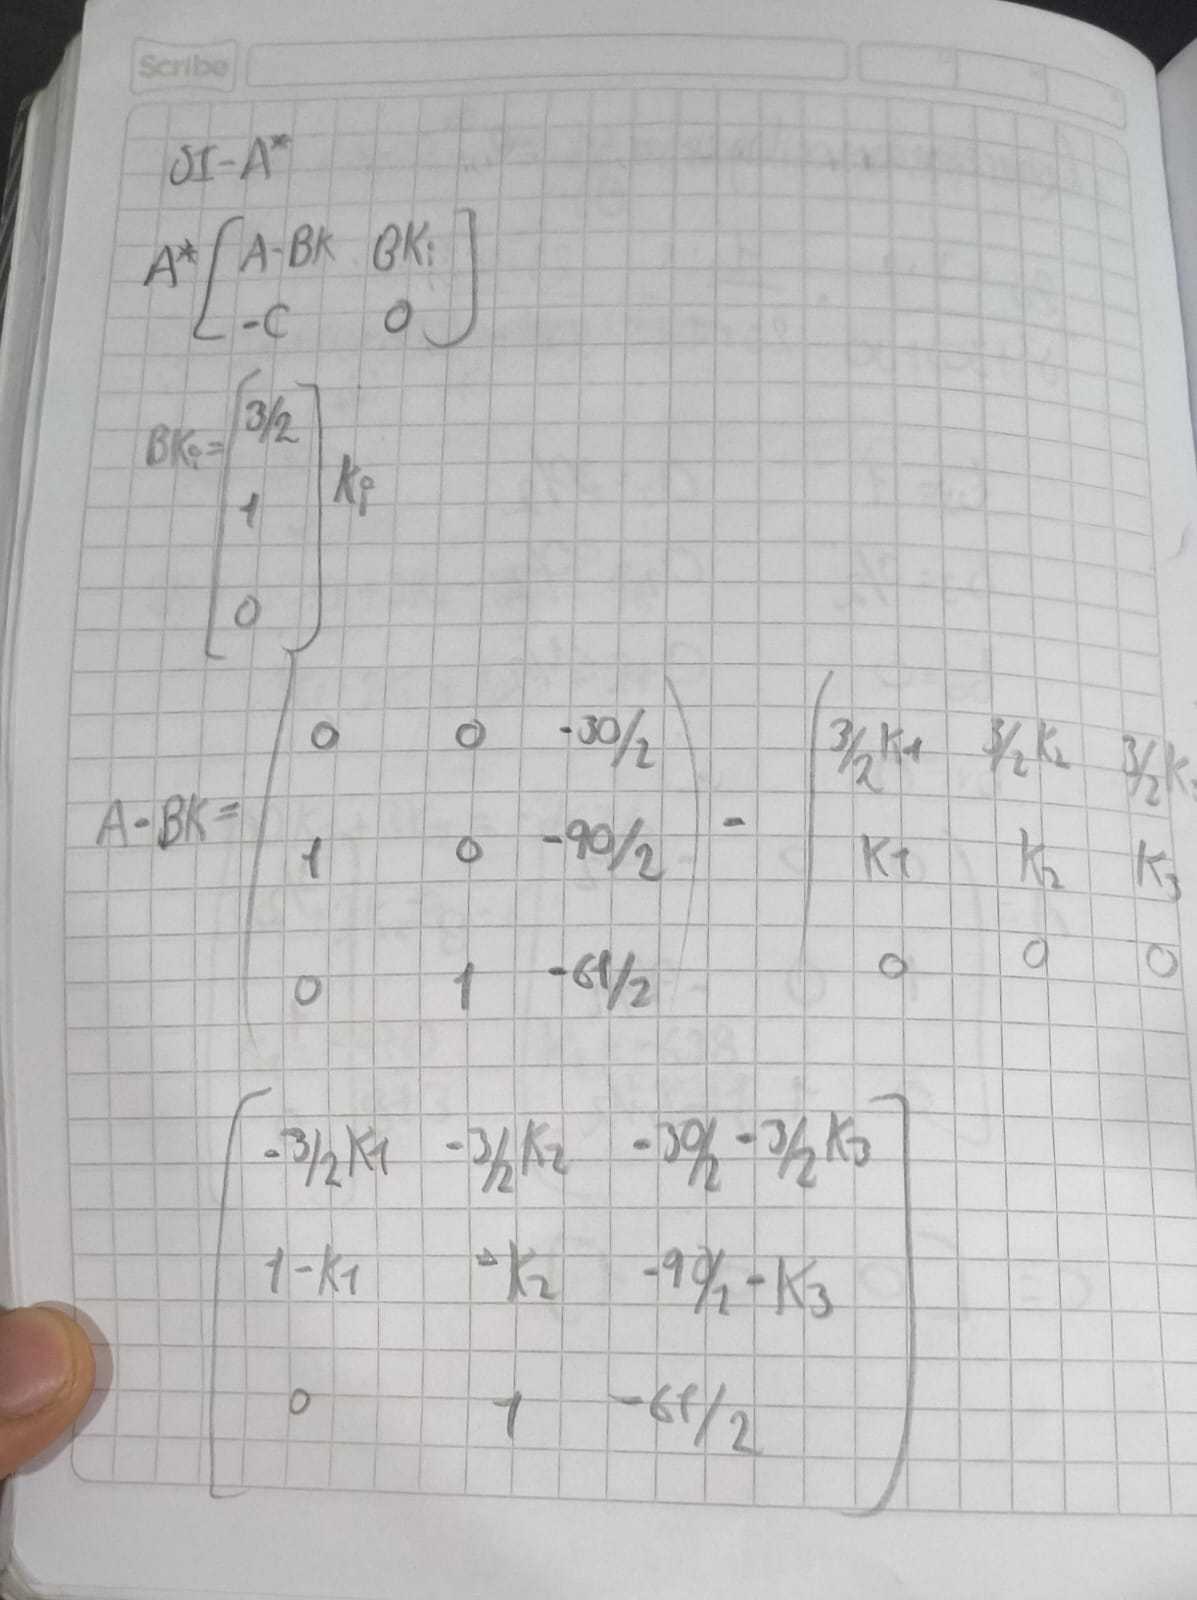 Scribe
SI-A*
A* [ A-BK BKi
-C 0 ]
BKi = [ 3/2
1
0 ] Ki
A-BK = ( 0 0 -30/2 ) - ( 3/2K1 3/2K2 3/2K
1 0 -90/2 K1 K2 K3
0 1 -61/2 0 0 0
[ -3/2K1 -3/2K2 -30/2-3/2K3
1-K1 -K2 -90/2-K3
0 1 -61/2 ]